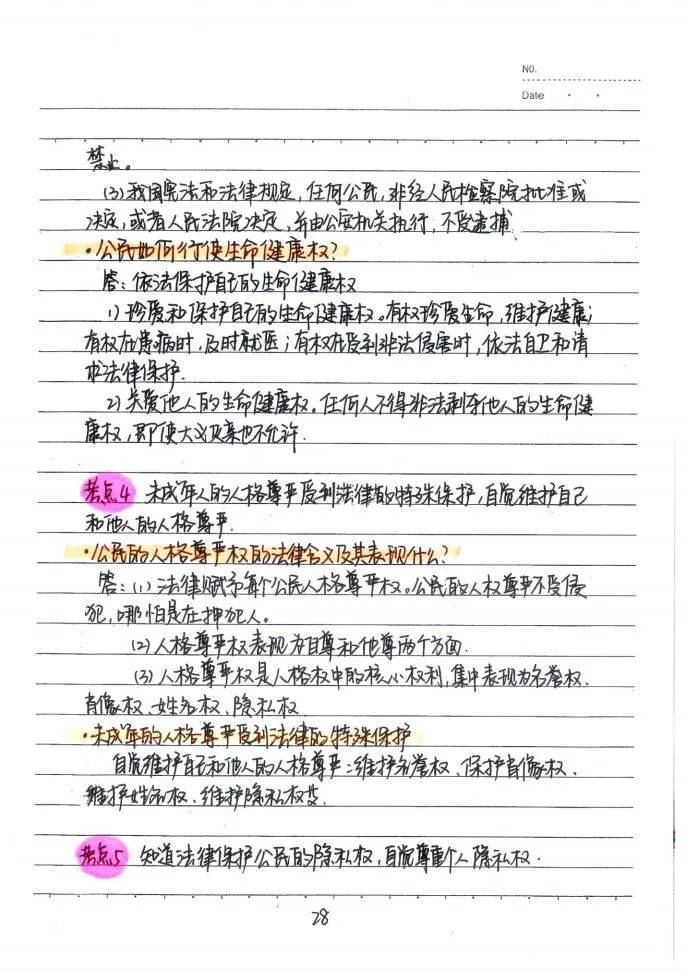 NO.
Date
禁止。
(3)我国宪法和法律规定,任何公民,非经人民检察院批准或
决定,或者人民法院决定,并由公安机关执行,不受逮捕.
·公民如何行使生命健康权?
答:依法保护自己的生命健康权
1)珍爱和保护自己的生命健康权。有权珍爱生命,维护健康;
有权在患病时,及时就医;有权在受到非法侵害时,依法自卫和请
求法律保护.
2)关爱他人的生命健康权.任何人不得非法剥夺他人的生命健
康权,即使大义灭亲也不允许.
考点4 未成年人的人格尊严受到法律的特殊保护,自觉维护自己
和他人的人格尊严.
·公民的人格尊严权的法律含义及其表现什么?
答:(1)法律赋予每个公民人格尊严权。公民的人权尊严不受侵
犯,哪怕是在押犯人。
(2)人格尊严权表现为自尊和他尊两个方面.
(3)人格尊严权是人格权中的核心权利,集中表现为名誉权、
肖像权、姓名权、隐私权
·未成年的人格尊严受到法律的特殊保护
自觉维护自己和他人的人格尊严:维护名誉权、保护肖像权、
维护姓名权、维护隐私权
考点5 知道法律保护公民的隐私权,自觉尊重个人隐私权.
28